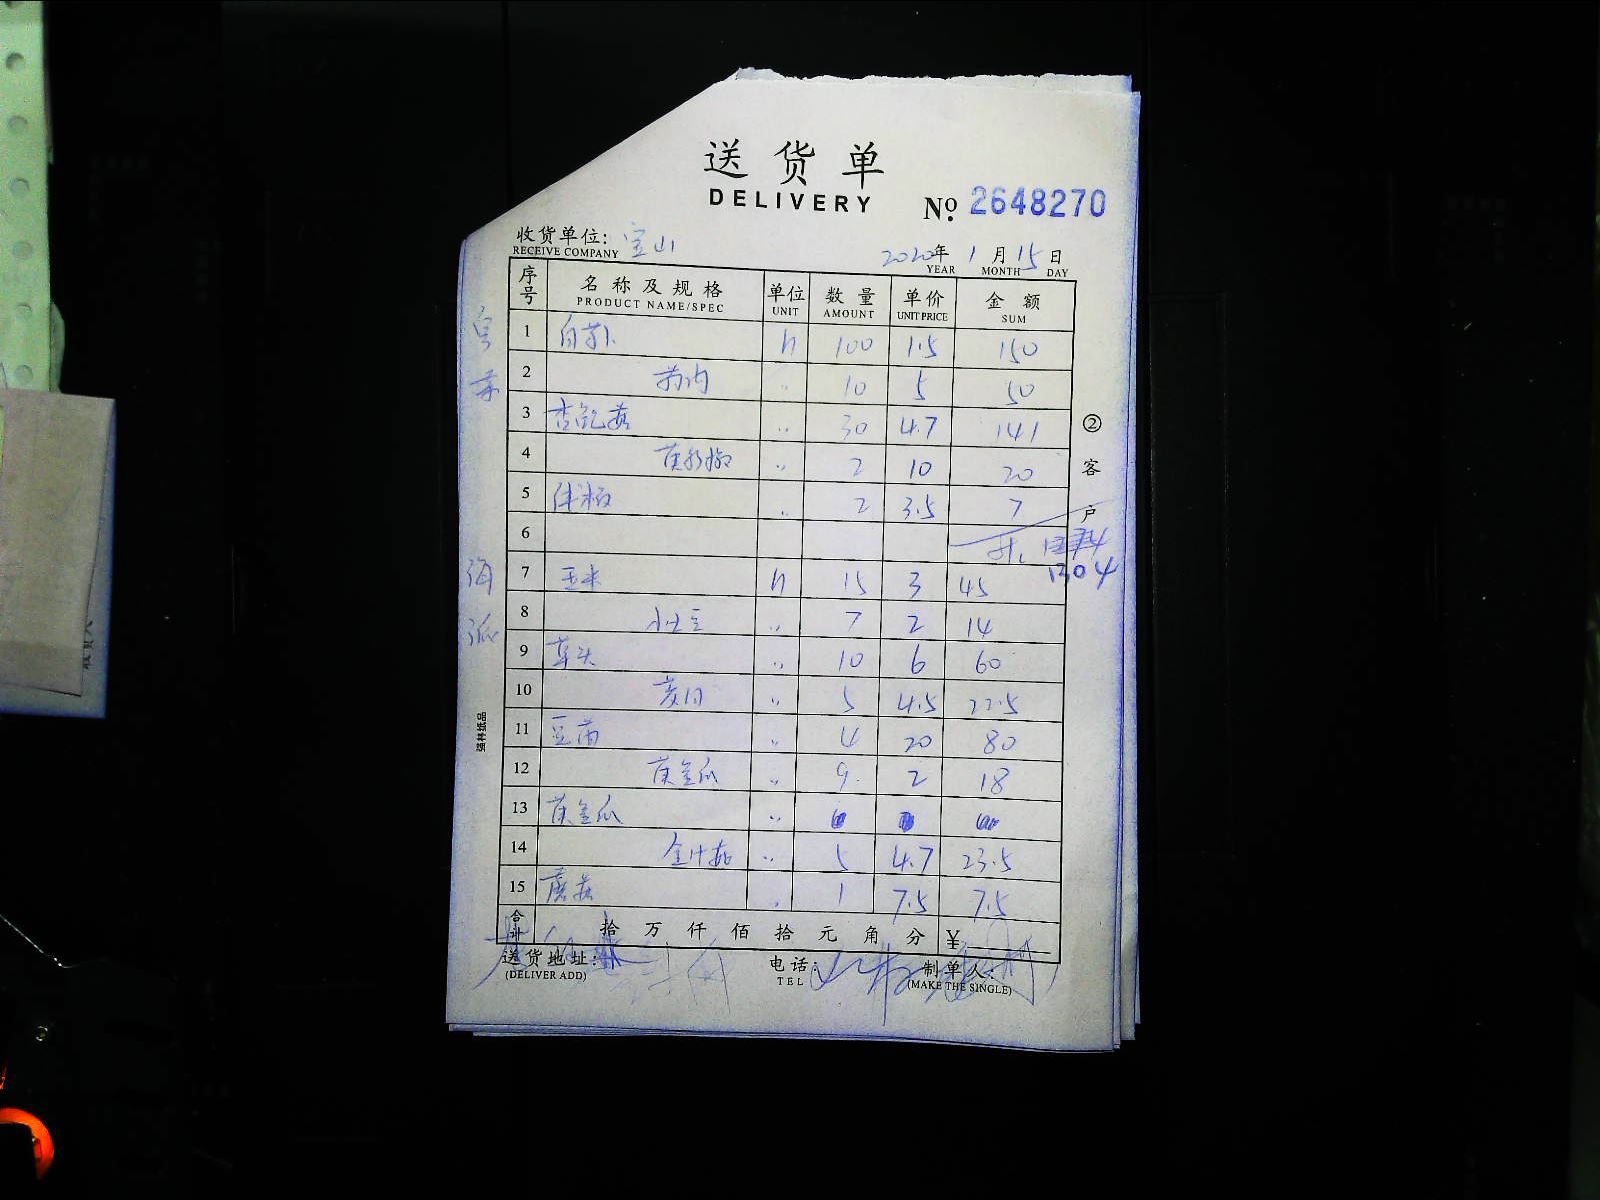 送货单
DELIVERY
№ 2648270
收货单位： 宝山
RECEIVE COMPANY
2020年 1月 15日
YEAR MONTH DAY
序号 名称及规格 单位 数量 单价 金额
PRODUCT NAME/SPEC UNIT AMOUNT UNIT PRICE SUM
1 100 1.5 150
2 〃 10 5 50
3 杏鲍菇 〃 30 4.7 141
4 〃 2 10 20
5 〃 2 3.5 7
6
1304
7 玉米 15 3 45
8 小土豆 〃 7 2 14
9 草头 〃 10 6 60
10 〃 5 4.5 22.5
11 豆苗 〃 4 20 80
12 黄金瓜 〃 9 2 18
13 黄金瓜 〃
14 金针菇 〃 5 4.7 23.5
15 蘑菇 1 7.5 7.5
合计 拾 万 仟 佰 拾 元 角 分 ¥
送货地址：
(DELIVER ADD)
电话：
TEL
制单人：
(MAKE THE SINGLE)
②客户
强林纸品